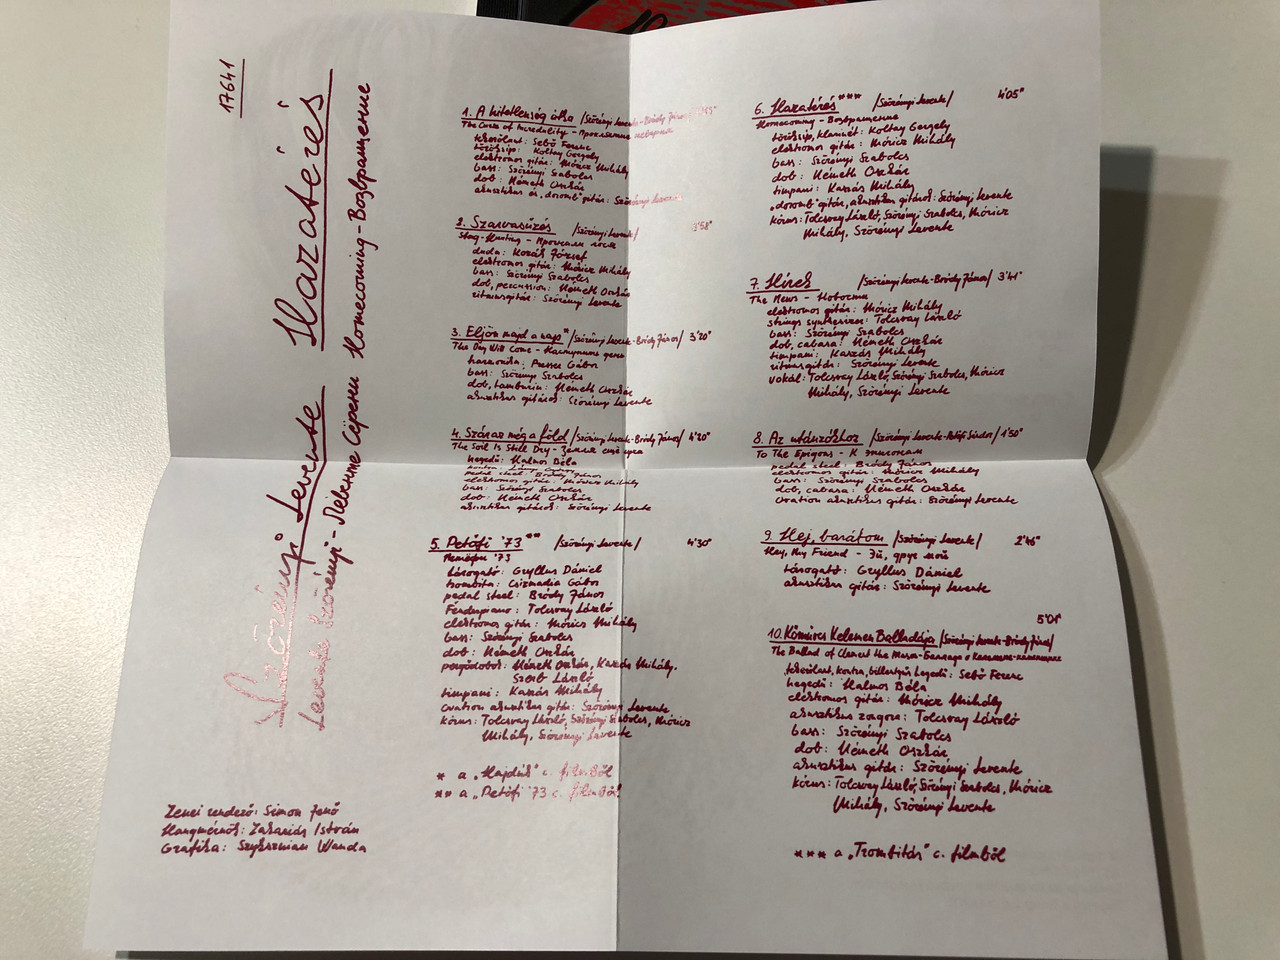 17641
Szörényi Levente Hazatérés
Levente Szörényi - Левенте Сёрени Homecoming - Возвращение
1. A hitetlenség átka /Szörényi Levente-Bródy János/
The Curse of Incredulity - Проклятие неверия
Sebő Ferenc
törökSíp: Koltay Gergely
elektromos gitár: Móricz Mihály
bass: Szörényi Szabolcs
dob: Németh Oszkár
akusztikus és „doromb" gitár: Szörényi Levente
2. Szarvasűzés /Szörényi Levente/ 3'58"
Stag-Hunting -
duda: Kozák József
elektromos gitár: Móricz Mihály
bass: Szörényi Szabolcs
dob, percussion: Németh Oszkár
ritmusgitár: Szörényi Levente
3. Eljön majd a nap* /Szörényi Levente-Bródy János/ 3'20"
The Day Will Come - Наступит день
harmonika: Presser Gábor
bass: Szörényi Szabolcs
dob, tamburin: Németh Oszkár
akusztikus gitárok: Szörényi Levente
4. Száraz még a föld /Szörényi Levente-Bródy János/ 4'20"
The Soil Is Still Dry - Земля ещё суха
hegedű: Halmos Béla
pedal steel: Bródy János
elektromos gitár: Móricz Mihály
bass: Szörényi Szabolcs
dob: Németh Oszkár
akusztikus gitárok: Szörényi Levente
5. Petőfi '73** /Szörényi Levente/ 4'30"
Петёфи '73
tárogató: Gryllus Dániel
trombita: Csizmadia Gábor
pedal steel: Bródy János
Fenderpiano: Tolcsvay László
elektromos gitár: Móricz Mihály
bass: Szörényi Szabolcs
dob: Németh Oszkár
pergődobok: Németh Oszkár, Kaszás Mihály,
Szerb László
timpani: Kaszás Mihály
ovation akusztikus gitár: Szörényi Levente
kórus: Tolcsvay László, Szörényi Szabolcs, Móricz
Mihály, Szörényi Levente
* a „Hajdúk" c. filmből
** a „Petőfi '73 c. filmből
6. Hazatérés*** /Szörényi Levente/ 4'05"
Homecoming - Возвращение
töröksíp, klarinét: Koltay Gergely
elektromos gitár: Móricz Mihály
bass: Szörényi Szabolcs
dob: Németh Oszkár
timpani: Kaszás Mihály
„doromb" gitár, akusztikus gitárok: Szörényi Levente
kórus: Tolcsvay László, Szörényi Szabolcs, Móricz
Mihály, Szörényi Levente
7. Hírek /Szörényi Levente-Bródy János/ 3'41"
The News - Новости
elektromos gitár: Móricz Mihály
strings synthesizer: Tolcsvay László
bass: Szörényi Szabolcs
dob, cabasa: Németh Oszkár
timpani: Kaszás Mihály
ritmusgitár: Szörényi Levente
vokál: Tolcsvay László, Szörényi Szabolcs, Móricz
Mihály, Szörényi Levente
8. Az utánzókhoz /Szörényi Levente-Petőfi Sándor/ 1'50"
To The Epigons - К эпигонам
pedal steel: Bródy János
elektromos gitár: Móricz Mihály
bass: Szörényi Szabolcs
dob, cabasa: Németh Oszkár
Ovation akusztikus gitár: Szörényi Levente
9. Hej, barátom /Szörényi Levente/ 2'46"
Hey, My Friend - Эй, друг мой
tárogató: Gryllus Dániel
akusztikus gitár: Szörényi Levente
5'01"
10. Kőmíves Kelemen Balladája /Szörényi Levente-Bródy János/
The Ballad of Clement the Mason - Баллада о Келемене-каменщике
tekerőlant, kontra, hegedű: Sebő Ferenc
hegedű: Halmos Béla
elektromos gitár: Móricz Mihály
akusztikus zongora: Tolcsvay László
bass: Szörényi Szabolcs
dob: Németh Oszkár
akusztikus gitár: Szörényi Levente
kórus: Tolcsvay László, Szörényi Szabolcs, Móricz
Mihály, Szörényi Levente
*** a „Trombitás" c. filmből
Zenei rendező: Simon Jenő
Hangmérnök: Zakariás István
Grafika: Szyksznian Wanda